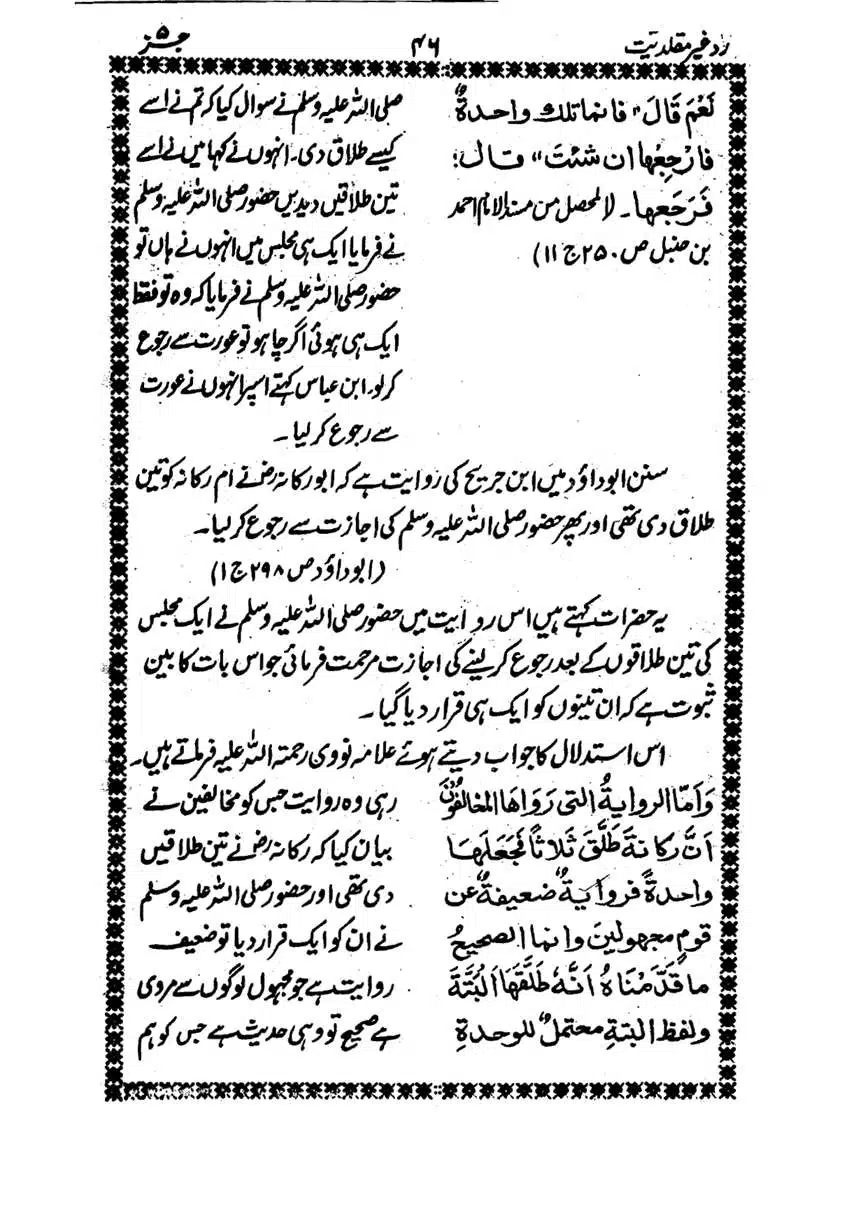 رد غیر مقلدیت
۴۶
جز ۵
نَعَمْ قَالَ" فانما تلك واحدةٌ
فارْجِعْها ان شئتَ" قال:
فَرَجَعها۔ لا لمحصل من مسند الامام احمد
بن حنبل ص ۲۵۰ ج ۱۱)
صلی اللہ علیہ وسلم نے سوال کیا کہ تم نے اسے
کیسے طلاق دی۔ انہوں نے کہا میں نے اسے
تین طلاقیں دیدیں حضور صلی اللہ علیہ وسلم
نے فرمایا ایک ہی مجلس میں انہوں نے ہاں تو
حضور صلی اللہ علیہ وسلم نے فرمایا کہ وہ تو فقط
ایک ہی ہوئی اگر چاہو تو عورت سے رجوع
کرلو۔ ابن عباس کہتے اسپر انہوں نے عورت
سے رجوع کر لیا۔
سنن ابوداؤد میں ابن جریج کی روایت ہے کہ ابو رکانہ رضؓ نے ام رکانہ کو تین
طلاق دی تھی اور پھر حضور صلی اللہ علیہ وسلم کی اجازت سے رجوع کر لیا۔
(ابوداؤد ص ۲۹۸ ج ۱)
یہ حضرات کہتے ہیں اس روایت میں حضور صلی اللہ علیہ وسلم نے ایک مجلس
کی تین طلاقوں کے بعد رجوع کرلینے کی اجازت مرحمت فرمائی جو اس بات کا بین
ثبوت ہے کہ ان تینوں کو ایک ہی قرار دیا گیا۔
اس استدلال کا جواب دیتے ہوئے علامہ نووی رحمتہ اللہ علیہ فرماتے ہیں۔
وَاَمّا الروایةُ التی رَوَاهَا المخالفونَ
اَنَّ رکانةَ طَلَّقَ ثَلاثاً فَجَعَلَهَا
واحدةً فروایةٌ ضعیفةٌ عن
قومٍ مجهولینَ وانما الصحیحُ
ما قَدَّمْنَاهُ اَنَّهٗ طَلَّقَهَا اَلْبُتَّةَ
ولفظ البتةِ محتملٌ للوحدةِ
رہی وہ روایت جس کو مخالفین نے
بیان کیا کہ رکانہ رضؓ نے تین طلاقیں
دی تھی اور حضور صلی اللہ علیہ وسلم
نے ان کو ایک قرار دیا تو ضعیف
روایت ہے جو مجہول لوگوں سے مردی
ہے صحیح تو وہی حدیث ہے جس کو ہم